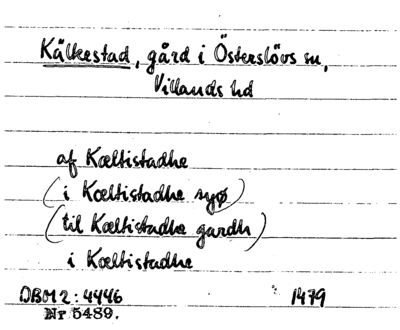 Kälkestad, gård i Österslövs sn,
Villands hd
af Kæltistadhe
(i Kæltistadhe syø)
(til Kæltistadhe gardh)
i Kæltistadhe
DBM 2: 4446 1479
Nr 5489.